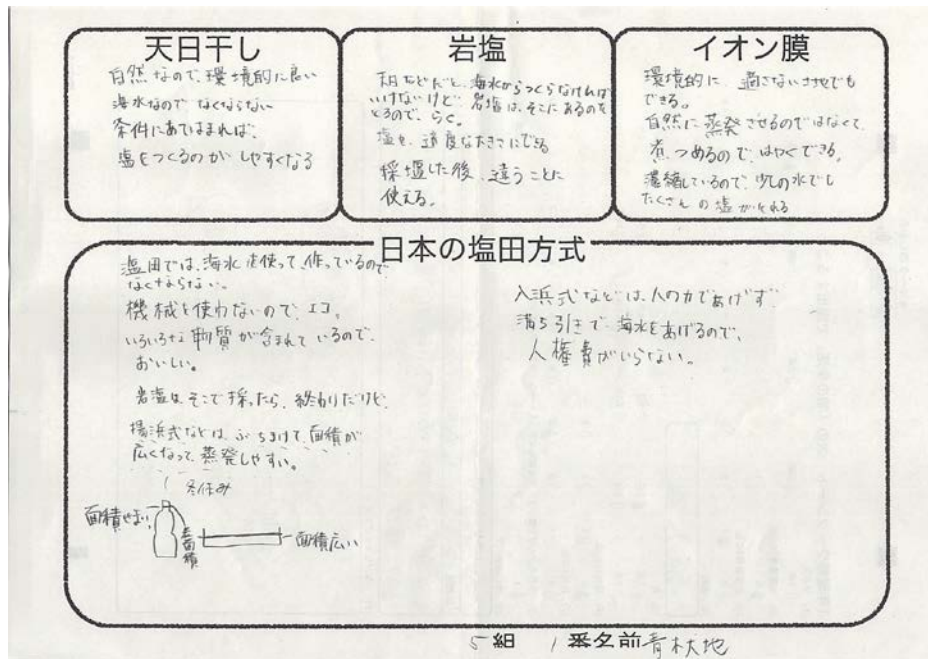 天日干し
自然なので、環境的に良い
海水なので なくならない
条件にあてはまれば、
塩をつくるのが しやすくなる
岩塩
などだと、海水からつくらなければ
いけないけど 岩塩は、そこにあるのを
とるので、らく。
塩を、適度な大きさにできる
採塩した後、違うことに
使える。
イオン膜
環境的に 適さない土地でも
できる。
自然に蒸発させるのではなくて、
煮つめるので はやくできる。
濃縮しているので、少しの水でも
たくさんの塩がとれる
日本の塩田方式
塩田では、海水を使って、作っているので
なくならない。
機械を使わないので、エコ。
いろいろな物質が含まれているので、
おいしい。
岩塩は、そこで採ったら、終わりだけど
揚浜式などは、ぶちまけて、面積が
広くなって、蒸発しやすい。
冬休み
面積せまい
表面積
面積広い
入浜式などは、人の力であげず
満ち引きで、海水をあげるので、
人権費がいらない。
5組 1番名前